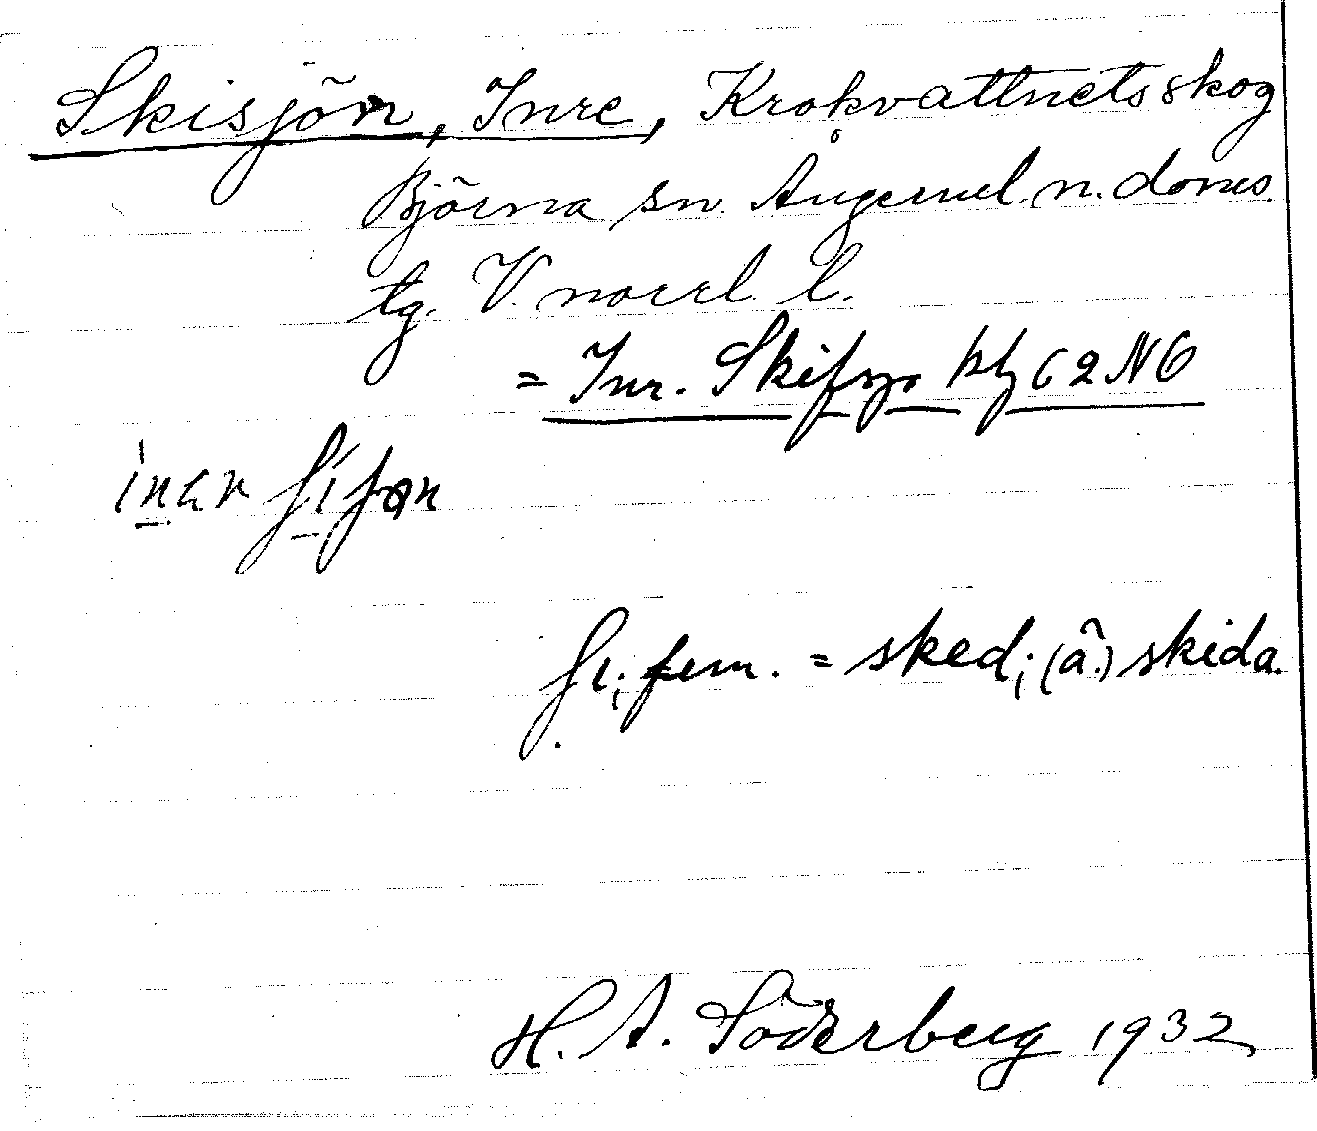 Skisjön, Inre, Krokvattnets skog
Björna sn. Ångerml. n. doms
tg. V. norrl. l.
= Inr. Skisjyn kbl 62 NO
ʃi, fem. = sked; (ä.) skida.
H. A. Söderberg 1932